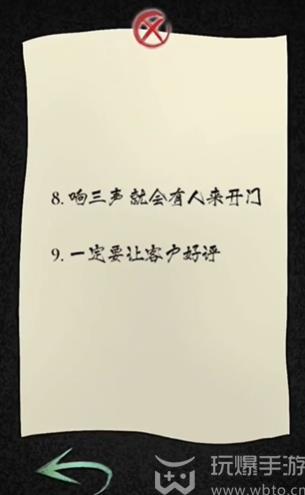 8. 响三声就会有人来开门
9. 一定要让客户好评
玩爆手游
www.wbto.cn